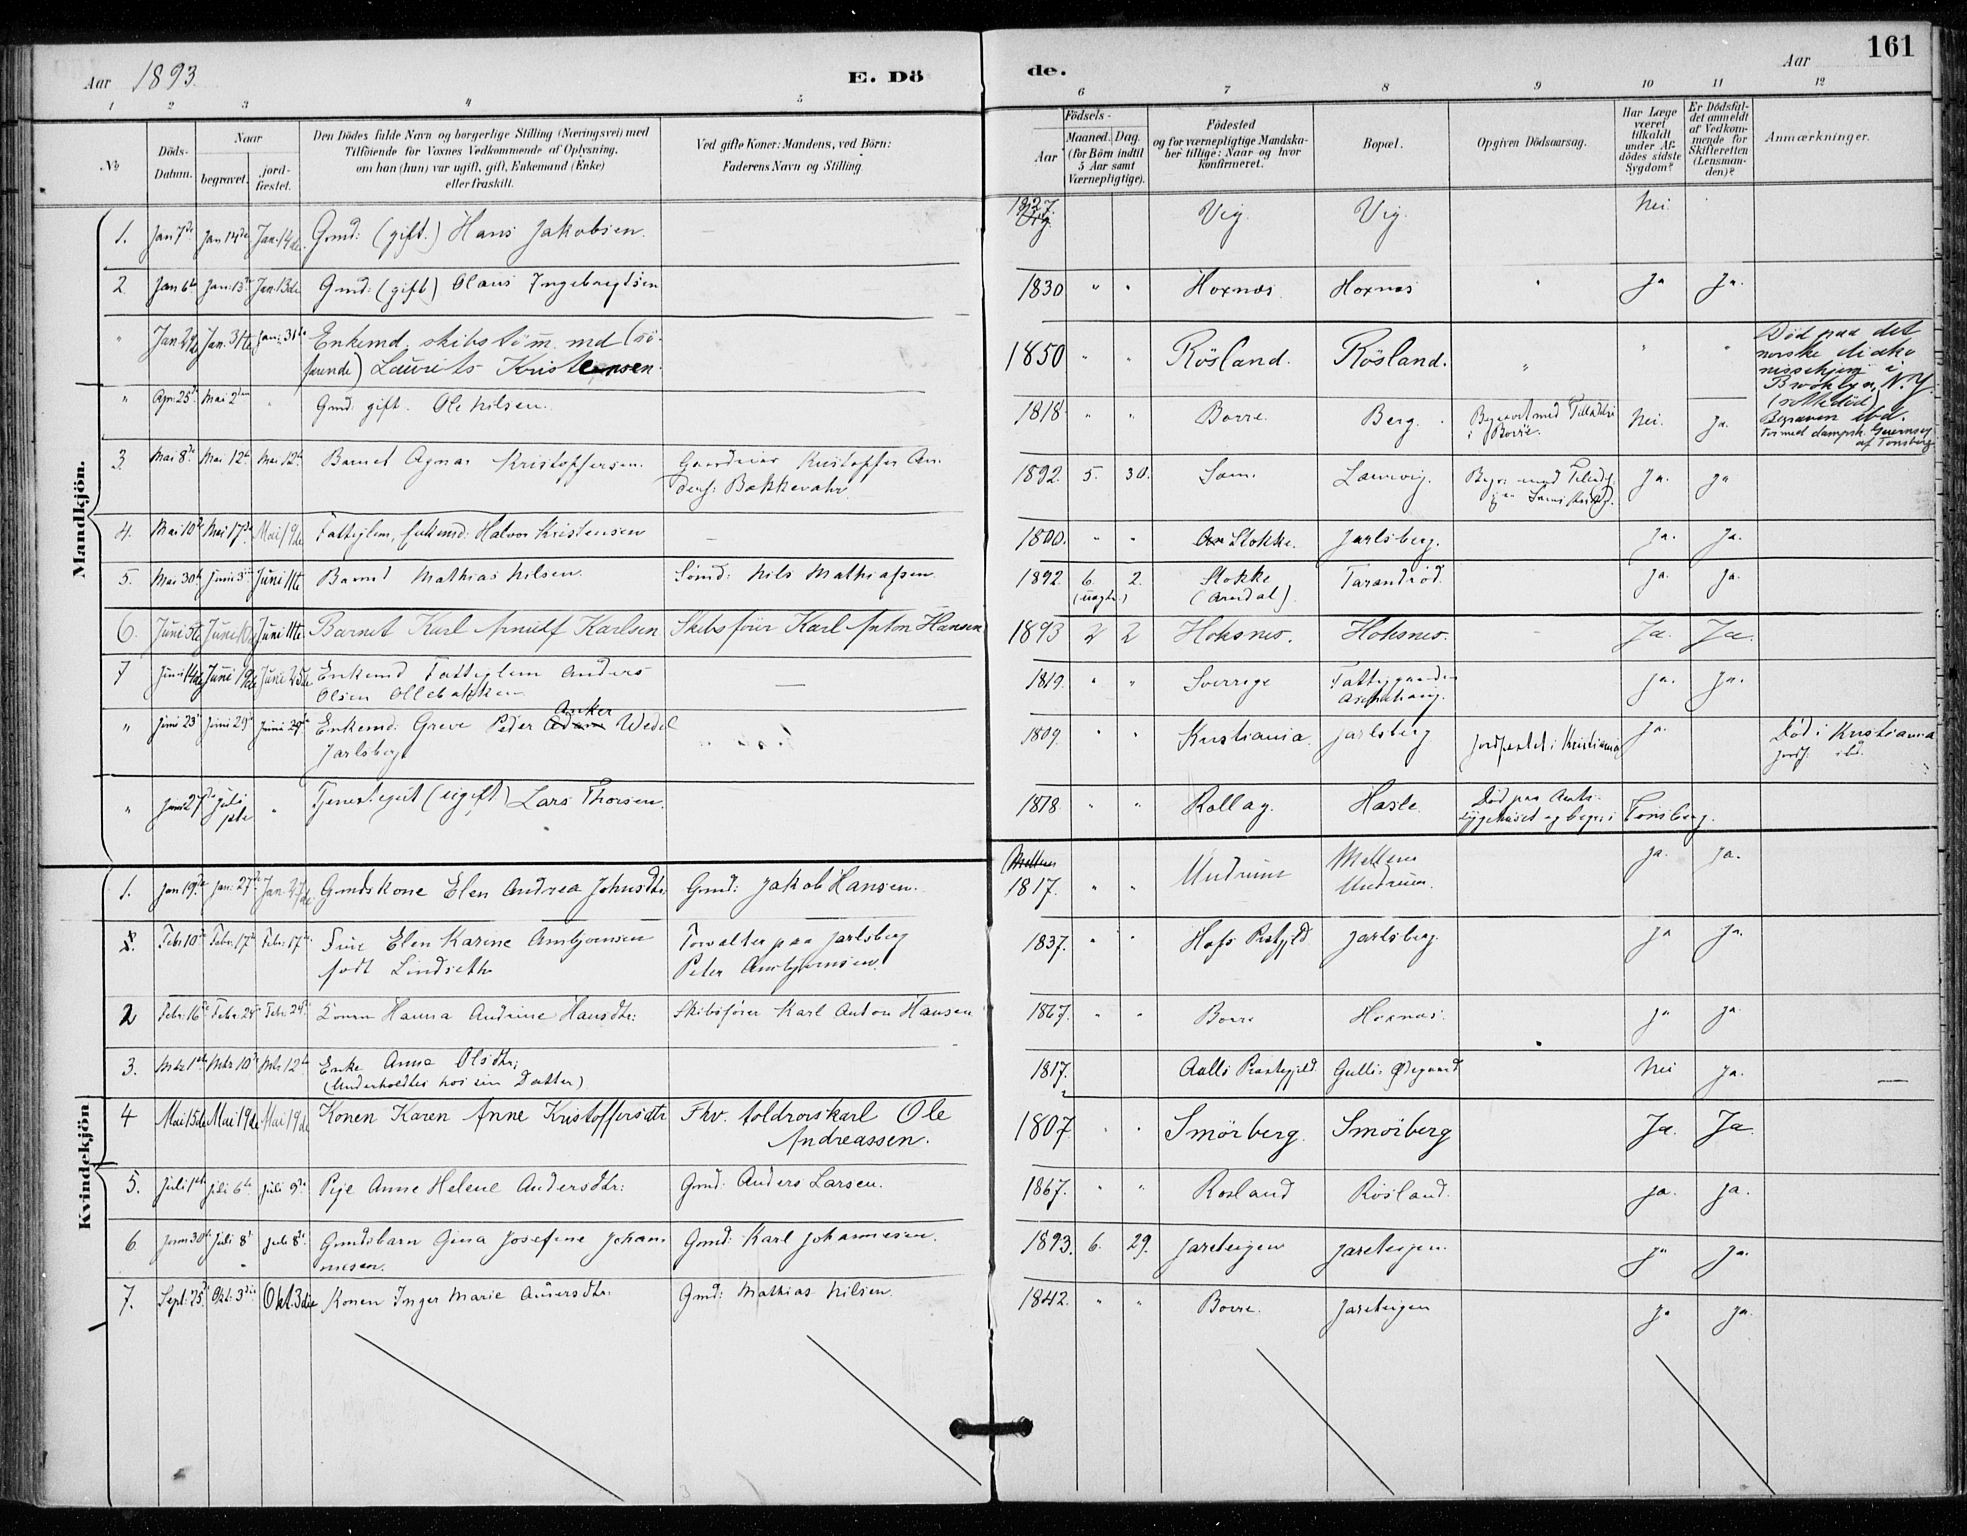 161
Aar 1893. E. Dö de. Aar
1 2 3 4 5 6 7 8 9 10 11 12
№
Döds-Datum.
Naar
begravet.
jord-fæstet.
Den Dödes fulde Navn og borgerlige Stilling (Næringsvei) med
Tilföiende for Voxnes Vedkommende af Oplysning,
om han (hun) var ugift, gift, Enkemand (Enke)
eller fraskilt.
Ved gifte Koner: Mandens, ved Börn:
Faderens Navn og Stilling.
Födsels-
Aar
Maaned. Dag.
(for Börn indtil
5 Aar samt
Værnepligtige).
Födested
og for værnepligtige Mandska-
ber tillige: Naar og hvor
konfirmeret.
Bopæl.
Opgiven Dödsaarsag.
Har Læge
været
tilkaldt
under Af-
dödes sidste
Sygdom?
Er Dödsfal-
det anmeldt
af Vedkom-
mende for
Skifteretten
(Lensman-
den)?
Anmærkninger.
Mandkjön.
1. Jan 7de Jan 14de Jan. 14de Gmd: (gift.) Hans Jakobsen. 1827 Vig. Vig. Nei
2 Jan 6te Jan: 13de Jan. 13de Gmd: (gift) Olaus Ingebregtsen 1830 " " Hoxnæs Hoxnæs " Ja Ja.
" Jan. Jan. 31te Jan: 31te Enkemd. skibstöm.md (sö-
farende) Laurits Kristensen. 1850 " " Rösland. Rösland. " " " Död paa det
norske diako
nissehjem i
Brooklyn, N.Y.
Begraven ibd.
" Apr: 25de Mai 2den " Gmd: gift. Ole Nilsen. 1818 " " Borre. Berg. Begravet med Tilladelse
i Borre. Nei. Ja.
3. Mai 8de Mai 12te Mai 12te Barnet Agnar Kristoffersen. Gaardeier Kristoffer An.
Bakkevahr 1892. 5. 30. Sem. Laurvig. Ja. Ja
4. Mai 10de Mai 17de Mai 19de Fattiglem, Enkemd: Halvor Kristensen — 1800. " " Stokke. Jarlsberg. Ja. Ja.
5. Mai 30te Juni 3die Juni 11te Barnet Mathias Nilsen. Sömd: Nils Mathiassen. 1892. 6. 2. Stokke
(uægte) (Arendal). Tarandröd. Ja. Ja.
6. Juni 5te Juni Juni 11te Barnet Karl Arnulf Karlsen Skibsförer Karl Anton Hansen 1893 2 2 Hoksnes. Hoksnes. — Ja. Ja.
7 Juni 14de Juni 19de Juni 25de Enkemd Fattiglem Anders
Olsen Ollebakken — 1819. " " Sverrige Fattiggaarden
Ja. Ja.
" Juni 23de Juni 29de Juni 29de Enkemd. Greve Peder Anker Wedel
Jarlsberg 1809. " " Kristiania. Jarlsberg Jordfæstet i Kristiania Ja. Död i Kristiania
jordf. ibd.
" Juni 27de Juli " Tjenestegut (ugift) Lars Thorsen. 1878 " " Rollag. Hasle Död paa Amts-
sygehuset og begr: i Tönsberg.
Kvindekjön
1. Jan 19de Jan: 27de Jan. 27de Gmdskone Elen Andrea Johnsdtr. Gmd: Jakob Hansen. 1817. " " Undrum Mellem
Undrum. Ja. Ja.
Febr 10de Febr. 17de Febr: 17de Frue Elen Karine Ambjørnsen
født Lindseth Forvalter paa Jarlsberg
Peter Ambjørnsen. 1837. " " Hofs Prstgjld Jarlsberg. Ja Ja.
2 Febr: 16de Febr. 24de Febr. 24de Konen Hanna Andrine Hansdtr: Skibsförer Karl Anton Hansen 1867. " " Borre Hoxnæs. Ja Ja.
3. Mrz 1ste Mrz 10de Mrz 12te Enke Anna Olsdtr;
(Underholdtes hos sin Datter) 1817. Præstegjeld. Gulli. Ødegaard Nei Ja. —
4 Mai 15de Mai 19de Mai 19de Konen Karen Anne Kristoffersdtr Fhv. toldrorskarl Ole
Andreassen. 1807 " " Smörberg. Smörberg Ja. Ja.
5. Juli 1ste Juli 6te Juli 9de Pige Anne Helene Andersdtr: Gmd: Anders Larsen. 1867. " " Rosland Rösland. Ja. Ja.
6. Juni 30te Juli 8de Juli 8de Gmdsbarn Gina Josefine Johan-
nesen. Gmd: Karl Johannesen. 1893. 6. 29. Jareteigen Jareteigen. Ja Ja.
7. Sept: 25de Okt: 3die Okt. 3die Konen Inger Marie Andersdtr: Gmd: Mathias Nilsen. 1842. " " Borre. Jareteigen Ja Ja.